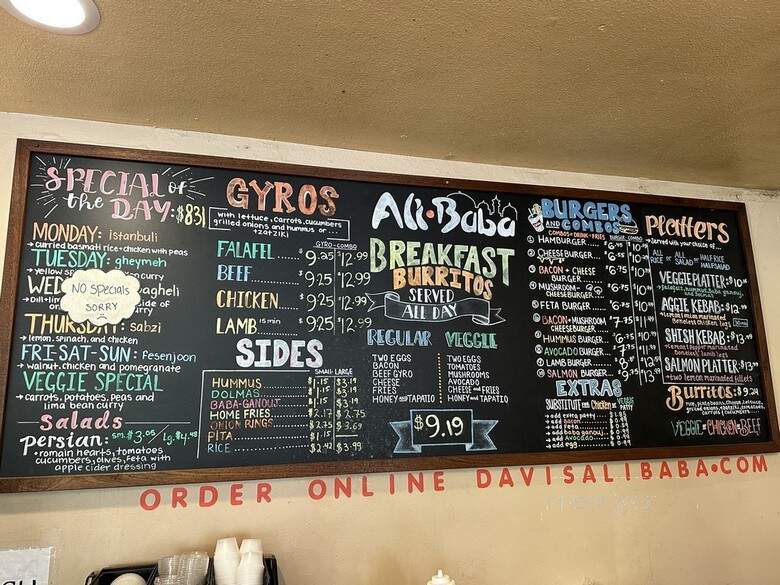 SPECIAL of
the DAY: $831
MONDAY: istanbuli
→ curried basmati rice + chicken with peas
TUESDAY: gheymeh
→ yellow
curry
WED
vagheli
side of
curry
NO Specials
SORRY
THURSDAY: sabzi
→ lemon, spinach, and chicken
FRI-SAT-SUN: Fesenjoon
→ walnut, chicken and pomegranate
VEGGIE SPECIAL
→ carrots, potatoes, peas and
lima bean curry
Salads
persian: sm. $3.05 / Lg. $4.48
• romain hearts, tomatoes
cucumbers, olives, feta with
apple cider dressing
GYROS
with lettuce, carrots, cucumbers
grilled onions and hummus or
tzatziki
GYRO - COMBO
FALAFEL 9.25 $12.99
BEEF $9.25 $12.99
CHICKEN $9.25 $12.99
LAMB 15 min $9.25 $12.99
SIDES
SMALL LARGE
HUMMUS $1.15 $3.19
DOLMAS $1.15 $3.19
BABA-GANOUJ $1.15 $3.19
HOME FRIES $2.17 $2.75
ONION RINGS $2.75 $3.69
PITA $1.15
RICE $2.42 $3.99
Ali•Baba
BREAKFAST
BURRITOS
SERVED
ALL DAY
REGULAR
TWO EGGS
BACON
BEEF GYRO
CHEESE
FRIES
HONEY and TAPATIO
VEGGIE
TWO EGGS
TOMATOES
MUSHROOMS
AVOCADO
CHEESE and FRIES
HONEY and TAPATIO
$9.19
BURGERS
AND COMBOS
COMBOS = DRINK + FRIES BURGER COMBO
① HAMBURGER
② CHEESEBURGER
③ BACON + CHEESE
BURGER
④ MUSHROOM +
CHEESEBURGER
⑤ FETA BURGER
⑥ BACON + MUSHROOM
CHEESEBURGER
⑦ HUMMUS BURGER
⑧ AVOCADO BURGER
⑨ LAMB BURGER
⑩ SALMON BURGER
EXTRAS
SUBSTITUTE with Chicken or VEGGIE PATTY
+ add extra patty
+ add feta
+ add bacon
+ add baba ganouj
+ add Avocado
+ add egg
Platters
→ Served with your choice of
ALL RICE or ALL SALAD or HALF RICE HALF SALAD
VEGGIE PLATTER:
AGGIE KEBAB:
→ lemon lime marinated
Boneless chicken legs
SHISH KEBAB:
SALMON PLATTER
→ two lemon marinated fillets
Burritos: $9.24
VEGGIE • CHICKEN • BEEF
ORDER ONLINE DAVISALIBABA.COM